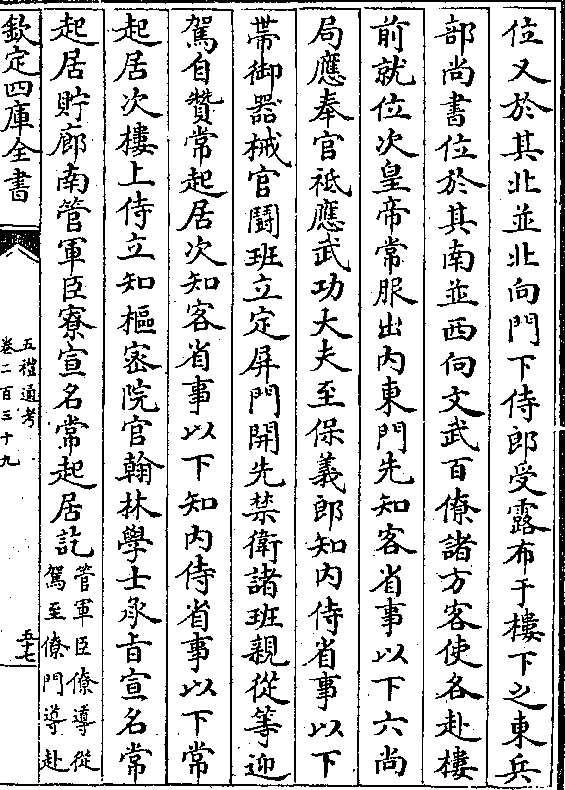 位又於其北並北向門下侍郎受露布于樓下之東兵
部尚書位於其南並西向文武百僚諸方客使各赴樓
前就位次皇帝常服出内東門先知客省事以下六尚
局應奉官祗應武功大夫至保義郎知内侍省事以下
帶御器械官鬬班立定屏門開先禁衛諸班親從等迎
駕自贊常起居次知客省事以下知内侍省事以下常
起居次樓上侍立知樞宻院官翰林學士承㫖宣名常
起居貯廊南管軍臣寮宣名常起居訖
管軍臣僚導從
駕至僚門導赴
欽定四庫全書
五禮通考
卷二百三十九
五十七